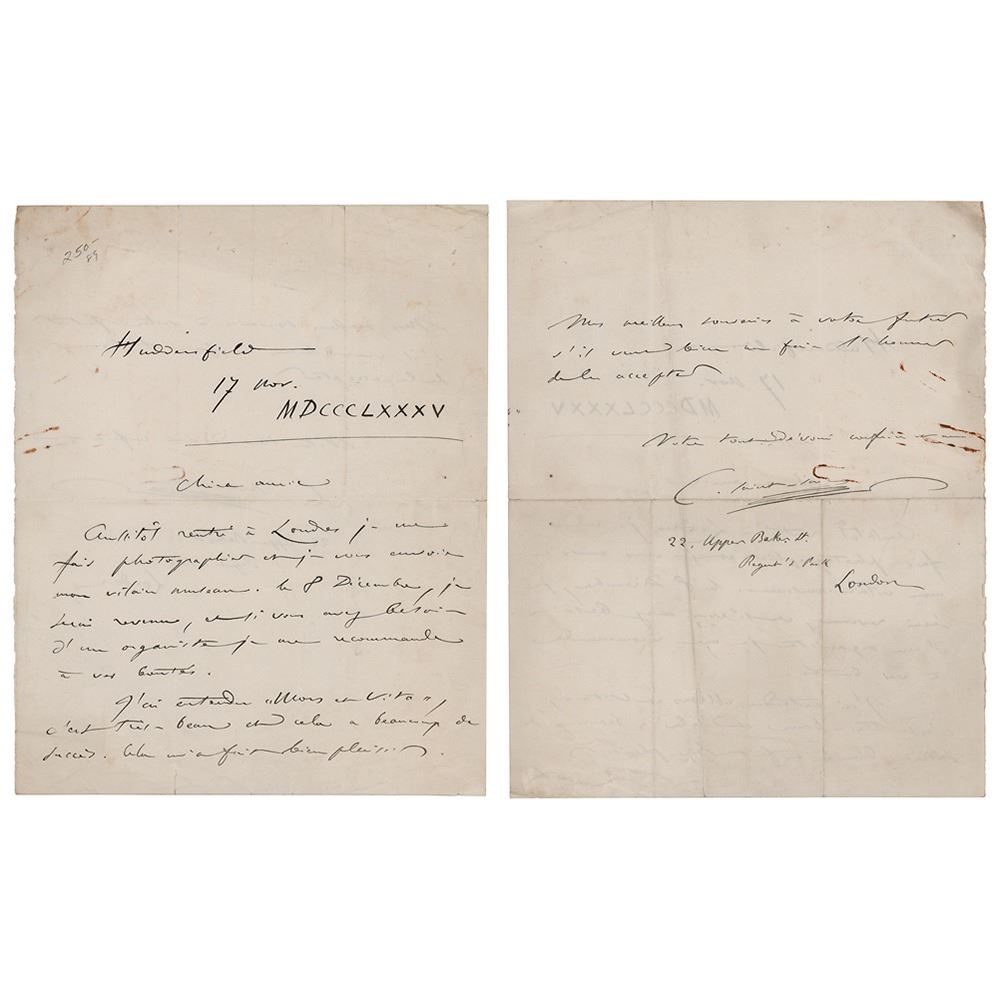 250-
89
Huddersfield
17 Nov.
MDCCCLXXXV
Chère amie
Aussitôt rentré à Londres je me
fais photographier et je vous envoie
mon vilain museau. le 8 Décembre, je
serai revenu, et si vous avez besoin
d'un organiste je me recommande
à vos bontés.
J'ai entendu "Mors et Vita",
c'est très-beau et cela a beaucoup de
succès. Cela m'a fait bien plaisir.
Mes meilleurs souvenirs à votre
s'il veut bien me faire l'honneur
de les accepter
Votre tout dévoué confrère et ami
C. Saint-Saëns
22, Upper Baker St.
Regent's Park
London